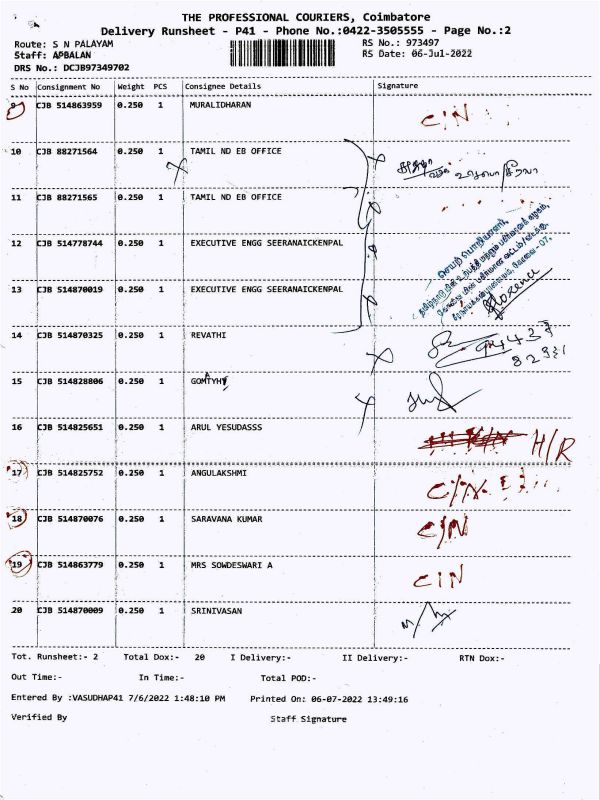 THE PROFESSIONAL COURIERS, Coimbatore
Delivery Runsheet - P41 - Phone No.:0422-3505555 - Page No.:2
Route: S N PALAYAM RS No.: 973497
Staff: APBALAN RS Date: 06-Jul-2022
DRS No.: DCJB97349702
S No Consignment No Weight PCS Consignee Details Signature
9 CJB 514863959 0.250 1 MURALIDHARAN C/N
10 CJB 88271564 0.250 1 TAMIL ND EB OFFICE
11 CJB 88271565 0.250 1 TAMIL ND EB OFFICE
12 CJB 514778744 0.250 1 EXECUTIVE ENGG SEERANAICKENPAL
செயற் பொறியாளர்,
13 CJB 514870019 0.250 1 EXECUTIVE ENGG SEERANAICKENPAL
14 CJB 514870325 0.250 1 REVATHI
15 CJB 514828806 0.250 1 GOMTYHY
16 CJB 514825651 0.250 1 ARUL YESUDASSS H/R
17 CJB 514825752 1 0.250 ANGULAKSHMI C/N
18 CJB 514870076 0.250 1 SARAVANA KUMAR C/N
19 CJB 514863779 0.250 1 MRS SOWDESWARI A C/N
20 CJB 514870009 0.250 1 SRINIVASAN
Tot. Runsheet:- 2 Total Dox:- 20 I Delivery:- II Delivery:- RTN Dox:-
Out Time:- In Time:- Total POD:-
Entered By :VASUDHAP41 7/6/2022 1:48:10 PM Printed On: 06-07-2022 13:49:16
Verified By Staff Signature